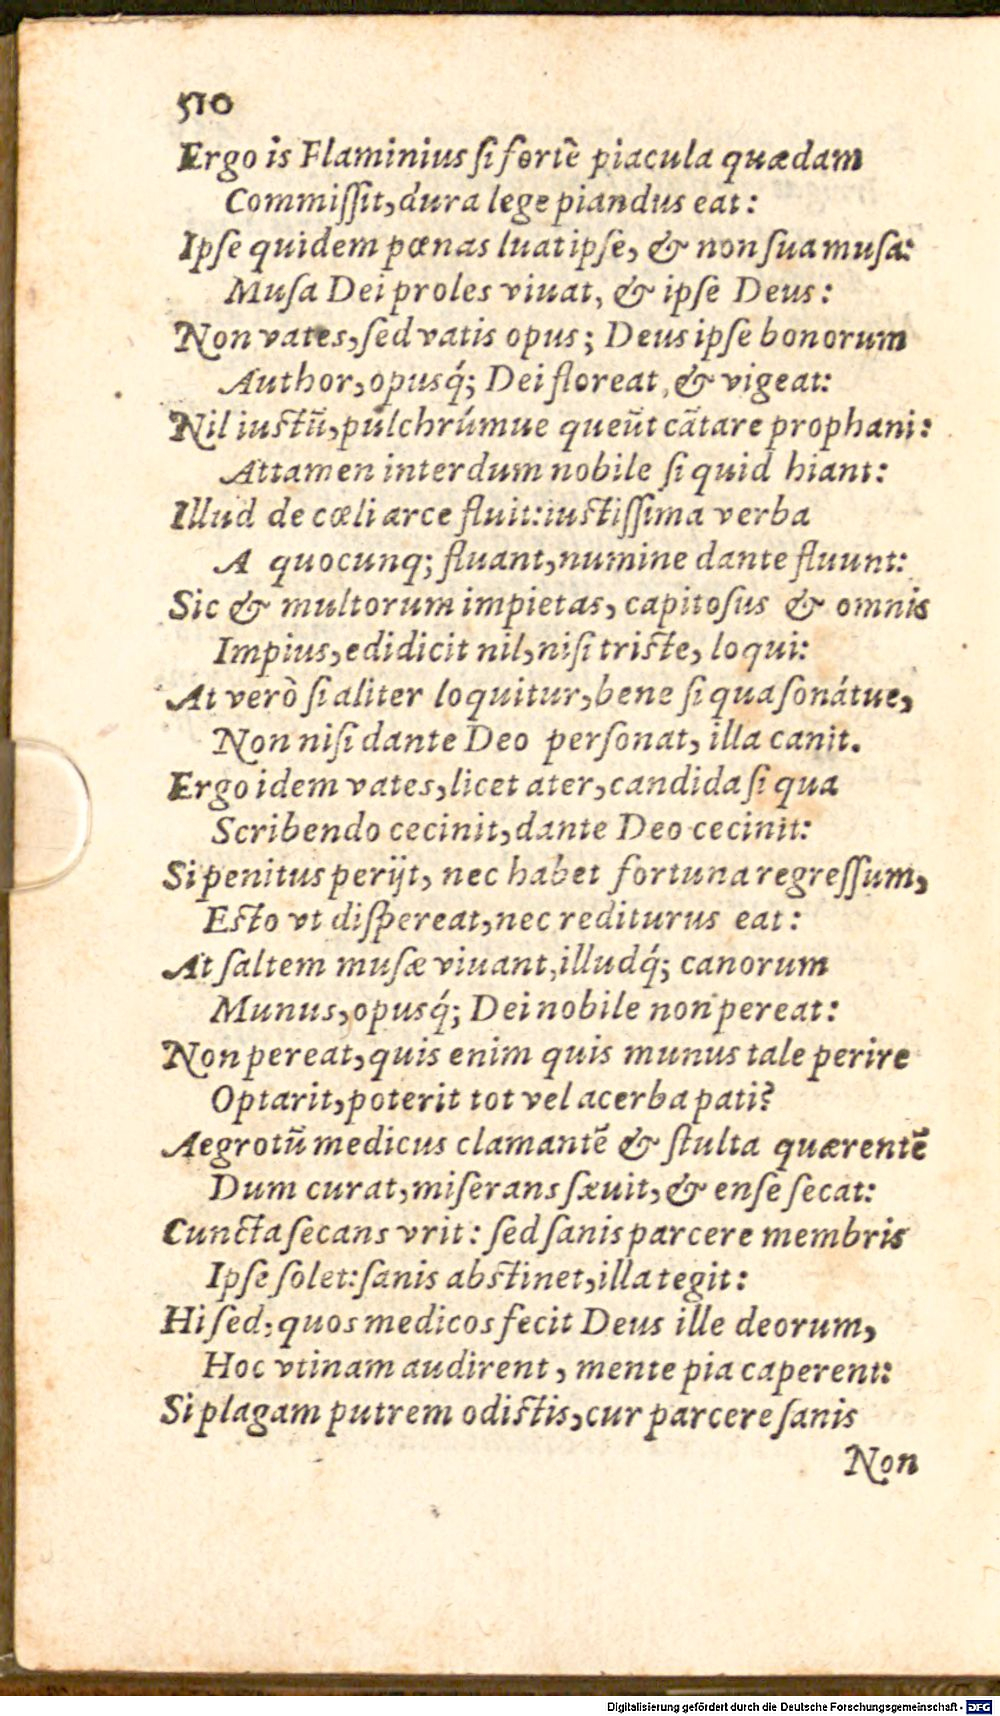 510
Ergo is Flaminius ſi fortẽ piacula quædam
Commiſſit, dura lege piandus eat:
Ipſe quidem pœnas luat ipſe, & non ſua muſa:
Muſa Dei proles viuat, & ipſe Deus:
Non vates, ſed vatis opus; Deus ipſe bonorum
Author, opusq́; Dei floreat, & vigeat:
Nil iuſtũ, pulchrúmue queũt cãtare prophani:
Attamen interdum nobile ſi quid hiant:
Illud de cœli arce fluit: iuſtiſſima verba
A quocunq; fluant, numine dante fluunt:
Sic & multorum impietas, capitoſus & omnis
Impius, edidicit nil, niſi triſte, loqui:
At verò ſi aliter loquitur, bene ſi qua ſonátue,
Non niſi dante Deo perſonat, illa canit.
Ergo idem vates, licet ater, candida ſi qua
Scribendo cecinit, dante Deo cecinit:
Si penitus perijt, nec habet fortuna regreſſum,
Eſto vt diſpereat, nec rediturus eat:
At ſaltem muſæ viuant, illudq́; canorum
Munus, opusq́; Dei nobile non pereat:
Non pereat, quis enim quis munus tale perire
Optarit, poterit tot vel acerba pati?
Aegrotũ medicus clamantẽ & ſtulta quærentẽ
Dum curat, miſerans ſæuit, & enſe ſecat:
Cuncta ſecans vrit: ſed ſanis parcere membris
Ipſe ſolet: ſanis abſtinet, illa tegit:
Hi ſed, quos medicos fecit Deus ille deorum,
Hoc vtinam audirent, mente pia caperent:
Si plagam putrem odiſtis, cur parcere ſanis
Non
Digitalisierung gefördert durch die Deutsche Forschungsgemeinschaft - DFG